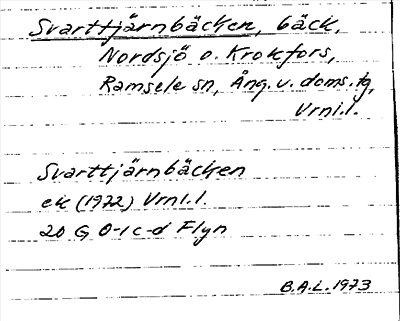 Svarttjärnbäcken, bäck,
Nordsjö o. Krokfors,
Ramsele sn, Ång. v. doms.tg,
Vrnl.l.
Svarttjärnbäcken
ek (1972) Vrnl.l.
20 G 0-1 c-d Flyn
B.A.L. 1973